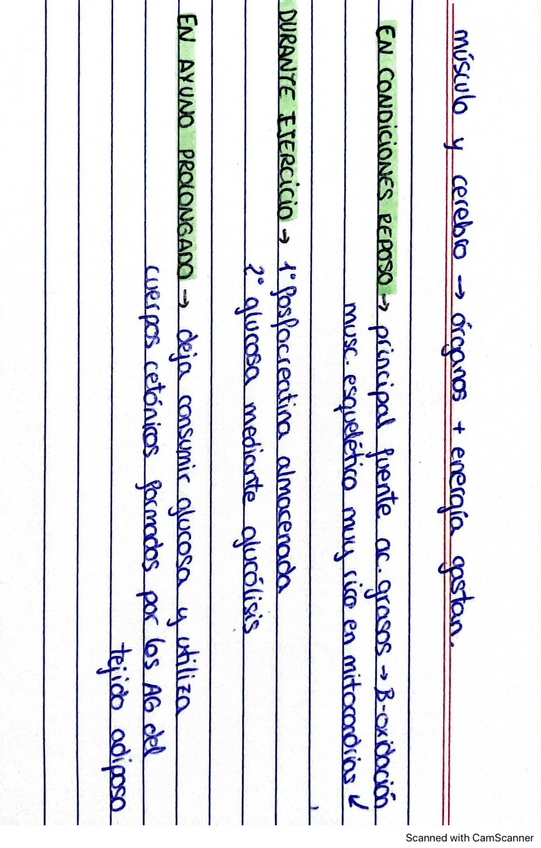 músculo y cerebro → órganos + energía gastan.
EN CONDICIONES REPOSO → principal fuente ac. grasos → B-oxidación
musc. esquelético muy rico en mitocondrias ↙
DURANTE EJERCICIO → 1º fosfocreatina almacenada
2º glucosa mediante glucólisis
EN AYUNO PROLONGADO → deja consumir glucosa y utiliza
cuerpos cetónicos formados por los AG del
tejido adiposo
Scanned with CamScanner